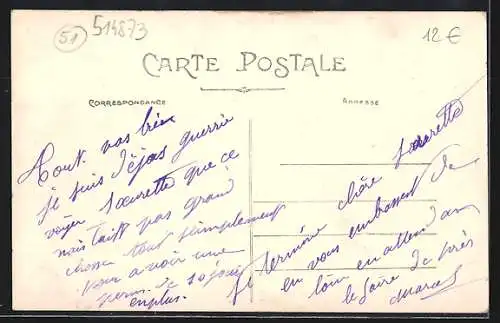 51
514873
12 €
CARTE POSTALE
CORRESPONDANCE
ADRESSE
Tout vas bien
je suis déjas guerrie
voyer Sœurette que ce
nais pas grand
chosse tout simplement
pour avoir une
perm. de 10 jours
en plus.
Je termine chère Sœurette
en vous embrassent de
loin en attendant
le faire de près
Marcel